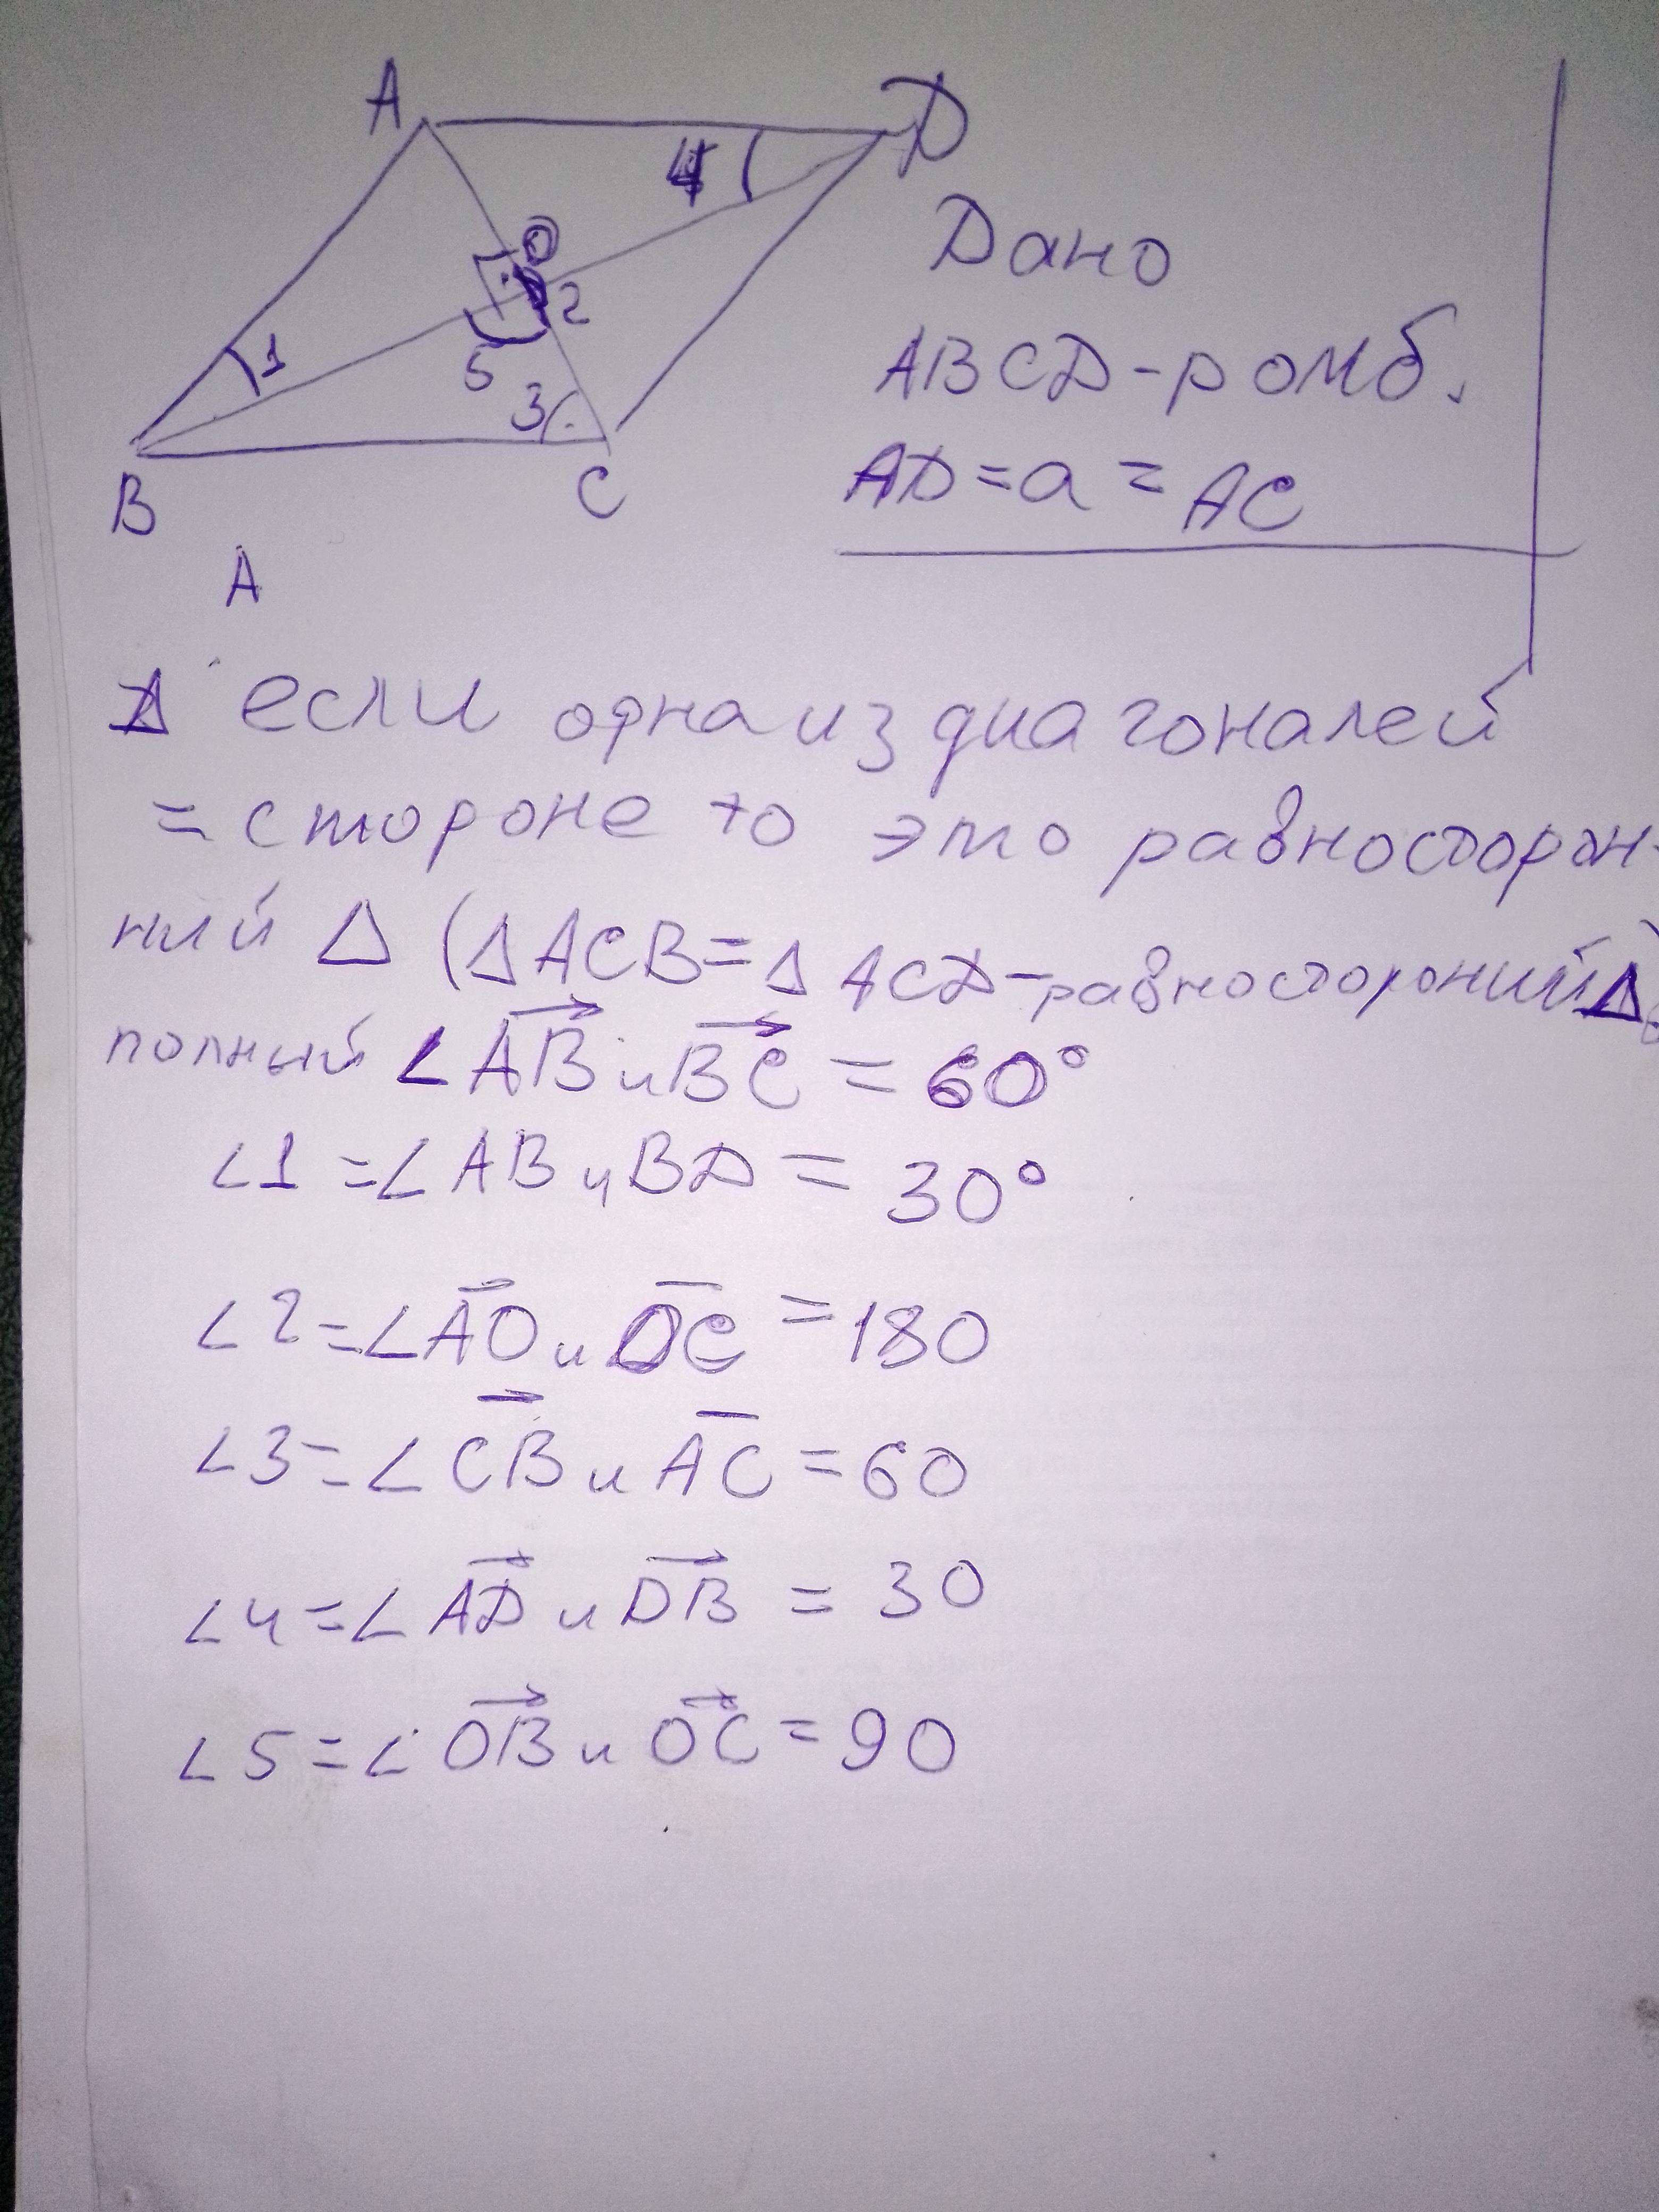 A
D
4
O
1
2
5
3
B
C
Дано
ABCD - ромб.
AD = a = AC
A
если одна из диагоналей
= стороне то это равносторон-
ний Δ (ΔACB = Δ ACD - равностороний Δ
полный ∠ AB и BC = 60°
∠1 = ∠ AB и BD = 30°
∠2 = ∠ AO и OC = 180
∠3 = ∠ CB и AC = 60
∠4 = ∠ AD и DB = 30
∠5 = ∠ OB и OC = 90